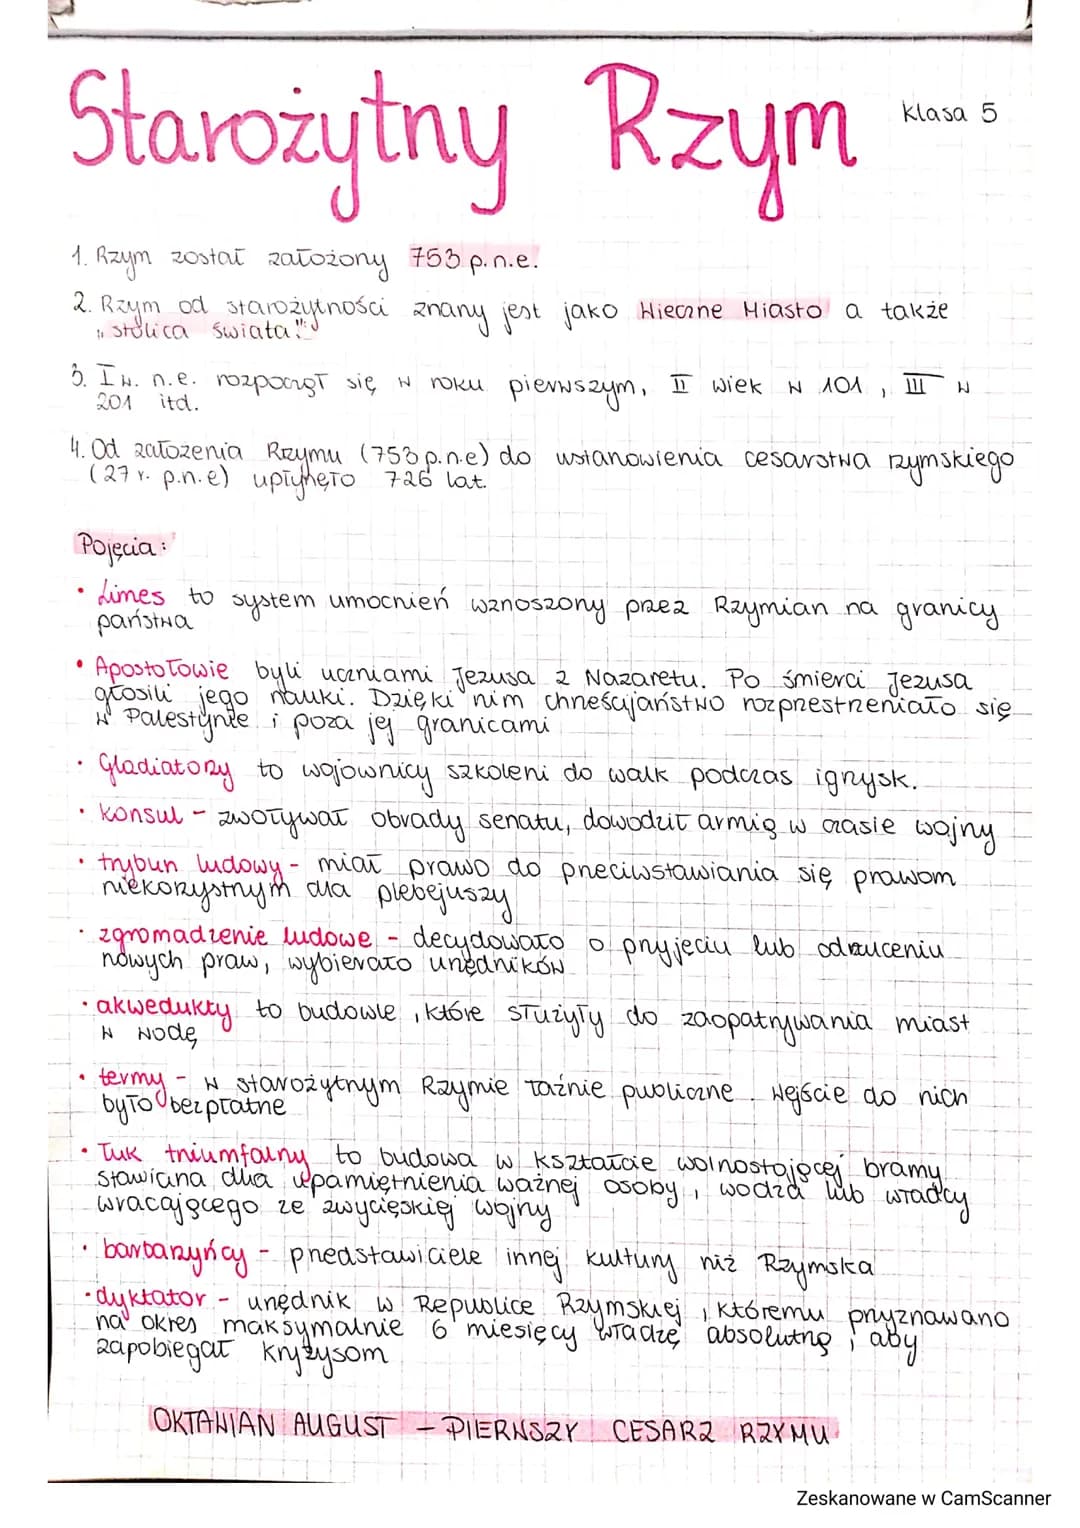 Starożytny Rzym Klasa 5
1. Rzym został założony 753 p.n.e.
2. Rzym od starożytności znany jest jako Wieczne Miasto a także
"stolica świata".
3. I w. n.e. rozpoczął się w roku pierwszym, II wiek w 101, III w
201 itd.
4. Od założenia Rzymu (753 p.n.e) do ustanowienia cesarstwa rzymskiego
(27 r. p.n.e) upłynęło 726 lat.
Pojęcia:
• Limes to system umocnień wznoszony przez Rzymian na granicy
państwa
• Apostołowie byli uczniami Jezusa z Nazaretu. Po śmierci Jezusa
głosili jego nauki. Dzięki nim chrześcijaństwo rozprzestrzeniało się
w Palestynie i poza jej granicami
• Gladiatorzy to wojownicy szkoleni do walk podczas igrzysk.
• konsul - zwoływał obrady senatu, dowodził armią w czasie wojny
• trybun ludowy - miał prawo do przeciwstawiania się prawom
niekorzystnym dla plebejuszy
• zgromadzenie ludowe - decydowało o przyjęciu lub odrzuceniu
nowych praw, wybierało urzędników
• akwedukty to budowle, które służyły do zaopatrywania miast
w wodę
• termy - w starożytnym Rzymie łaźnie publiczne. Wejście do nich
było bezpłatne
• Łuk triumfalny to budowa w kształcie wolnostojącej bramy
stawiana dla upamiętnienia ważnej osoby, wodza lub władcy
wracającego ze zwycięskiej wojny
• barbarzyńcy - przedstawiciele innej kultury niż Rzymska
• dyktator - urzędnik w Republice Rzymskiej, któremu przyznawano
na okres maksymalnie 6 miesięcy władzę absolutną, aby
zapobiegał kryzysom
OKTAWIAN AUGUST - PIERWSZY CESARZ RZYMU
Zeskanowane w CamScanner